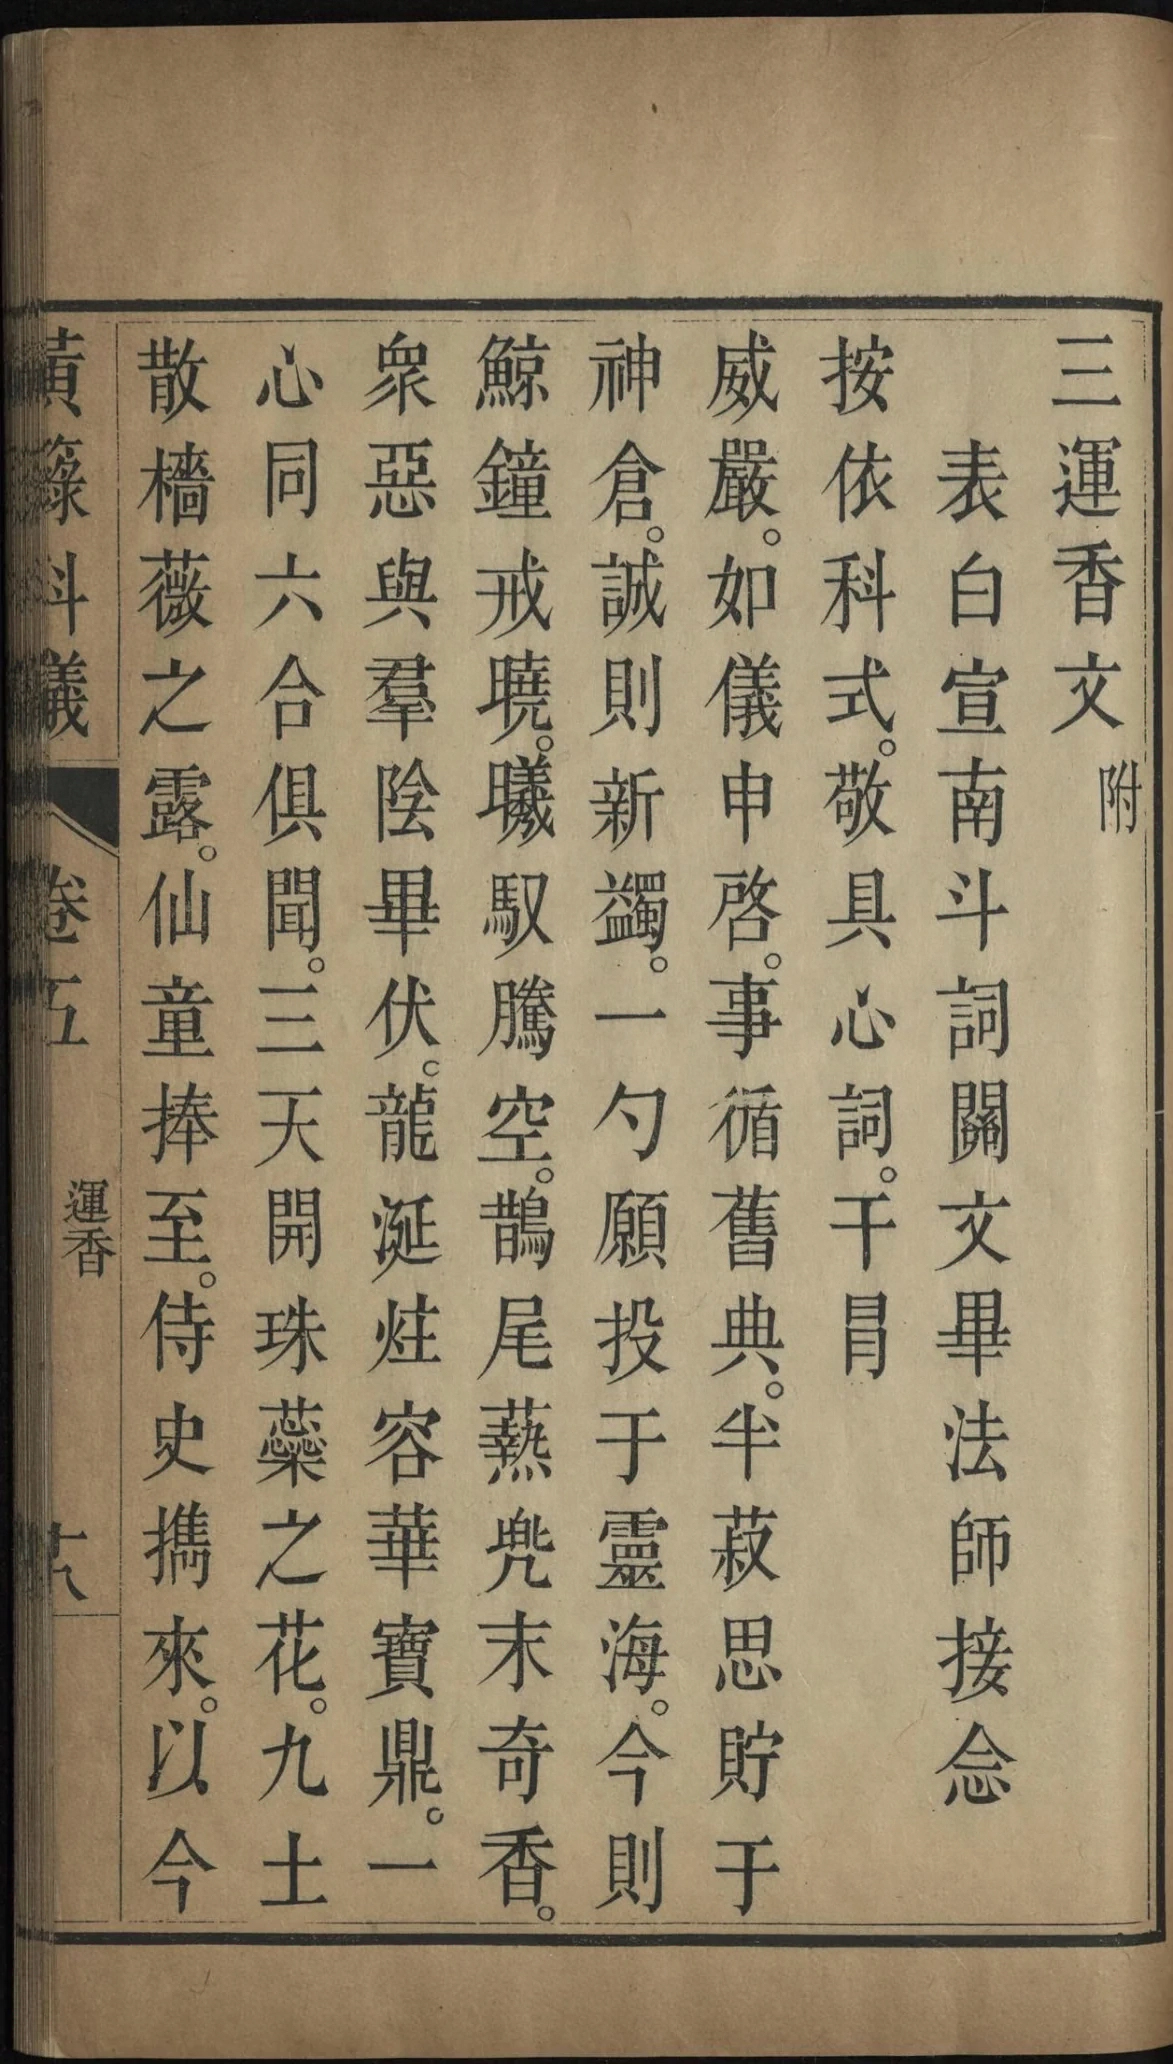 三運香文附
表白宣南斗詞關文畢法師接念
按依科式。敬具心詞。干冐
威嚴。如儀申啓。事循舊典。半菽思貯于
神倉。誠則新蠲。一勺願投于靈海。今則
鯨鐘戒曉。曦馭騰空。鵲尾爇兠末奇香。
衆惡與羣陰畢伏。龍涎炷容華寶鼎。一
心同六合俱聞。三天開珠蘂之花。九土
散檣薇之露。仙童捧至。侍史擕來。以今
黃籙科儀 卷五 運香 十八